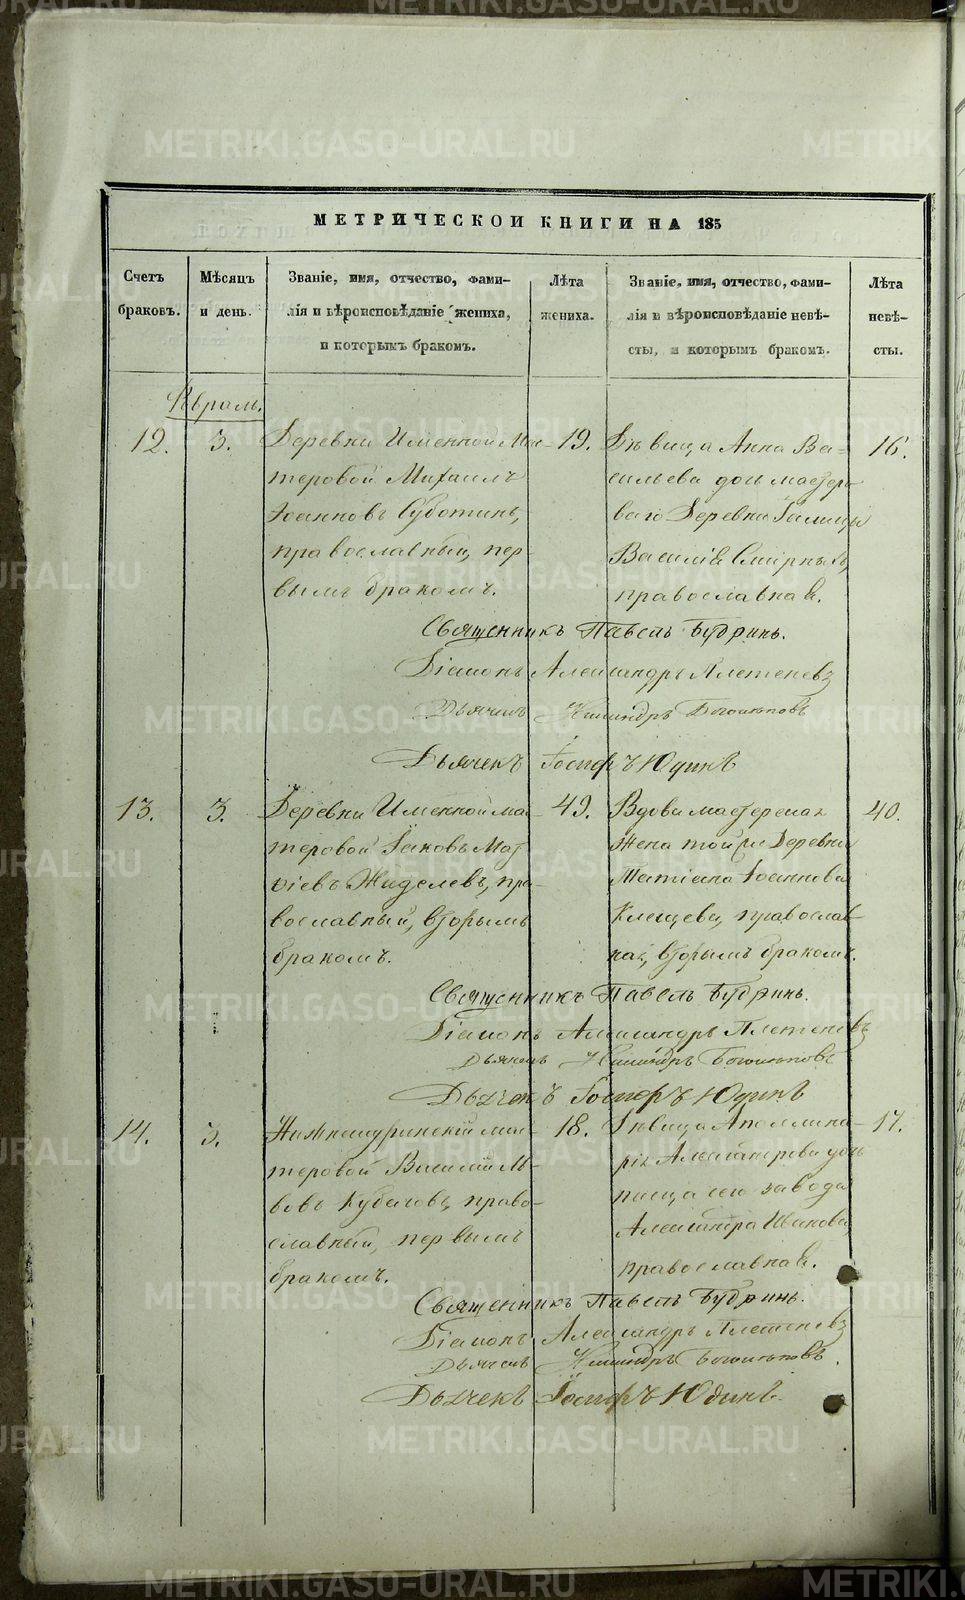 METRIKI.GASO-URAL.RU
МЕТРИЧЕСКОЙ КНИГИ НА 185
Счетъ браковъ.
Мѣсяцъ и день.
Званіе, имя, отчество, фами-
лія и вѣроисповѣданіе жениха,
и которымъ бракомъ.
Лѣта жениха.
Званіе, имя, отчество, фами-
лія и вѣроисповѣданіе невѣ-
сты, и которымъ бракомъ.
Лѣта невѣ-
сты.
12.
3.
Деревни Именной Мас-
теровой Михаилъ
Іоанновъ Суботинъ,
православный, пер-
вымъ бракомъ.
19.
Дѣвица Анна Ва-
сильева дочь мастеро-
ваго Деревни
Василія Смирныхъ,
православная.
16.
Священникъ Павелъ Будринъ.
Діаконъ Александръ Плетеневъ
Дьячекъ
Дьячекъ Іосифъ Юдинъ
13.
3.
Деревни Именной мас-
теровой Іаковъ Мат
ѳіевъ пра-
вославный, вторымъ
бракомъ.
49.
Вдова мастерская
жена той же Деревни
Татіана Іоаннова
Клещева, православ-
ная, вторымъ бракомъ.
40.
Священникъ Павелъ Будринъ.
Діаконъ Александръ Плетеневъ
Дьячекъ
Дьячекъ Іосифъ Юдинъ
14.
3.
Нижнетуринскій мас-
теровой Василій Ль-
вовъ право-
славный, первымъ
бракомъ.
18.
Дѣвица Аполлина-
рія Александрова дочь
писца сего завода
Александра Иванова,
православная.
17.
Священникъ Павелъ Будринъ.
Діаконъ Александръ Плетеневъ
Дьячекъ
Дьячекъ Іосифъ Юдинъ